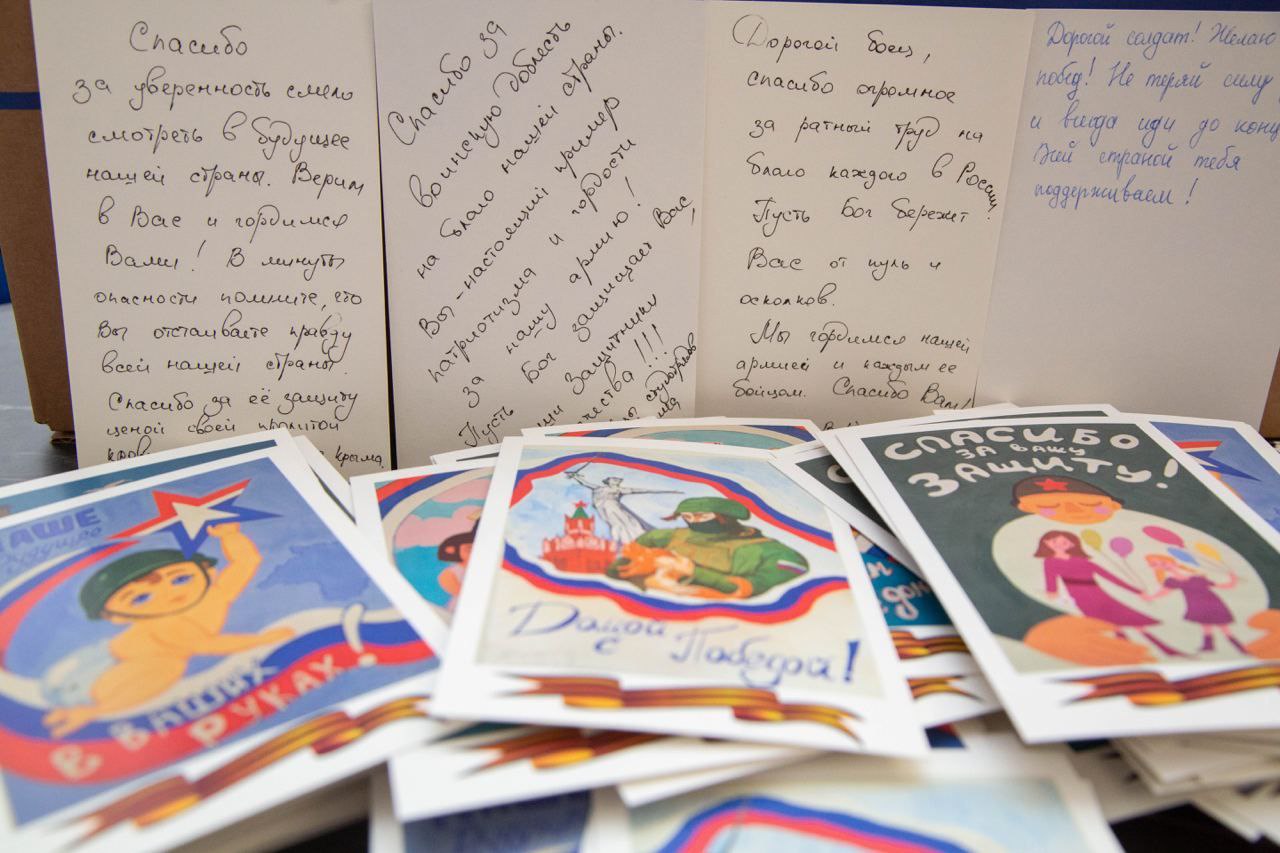 Спасибо
за уверенность смело
смотреть в будущее
нашей страны. Верим
в Вас и гордимся
Вами! В минуты
опасности помните, что
Вы отстаиваете правду
всей нашей страны.
Спасибо за её защиту
ценой своей пролитой
кров
Крыма
Спасибо за
воинскую доблесть
на благо нашей страны.
Вы - настоящий пример
патриотизма и гордости
за нашу армию!
Пусть Бог защищает Вас,
Защитники
!!!
Дорогой боец,
спасибо огромное
за ратный труд на
благо каждого в России.
Пусть Бог бережет
Вас от пуль и
осколков.
Мы гордимся нашей
армией и каждым ее
бойцом. Спасибо Вам!
Дорогой солдат! Желаю
побед! Не теряй силу
и всегда иди до конц
Всей страной тебя
поддерживаем!
НАШЕ
будущее
в ваших
руках!
Домой
с Победой!
дом
СПАСИБО
ЗА ВАШУ
ЗАЩИТУ!